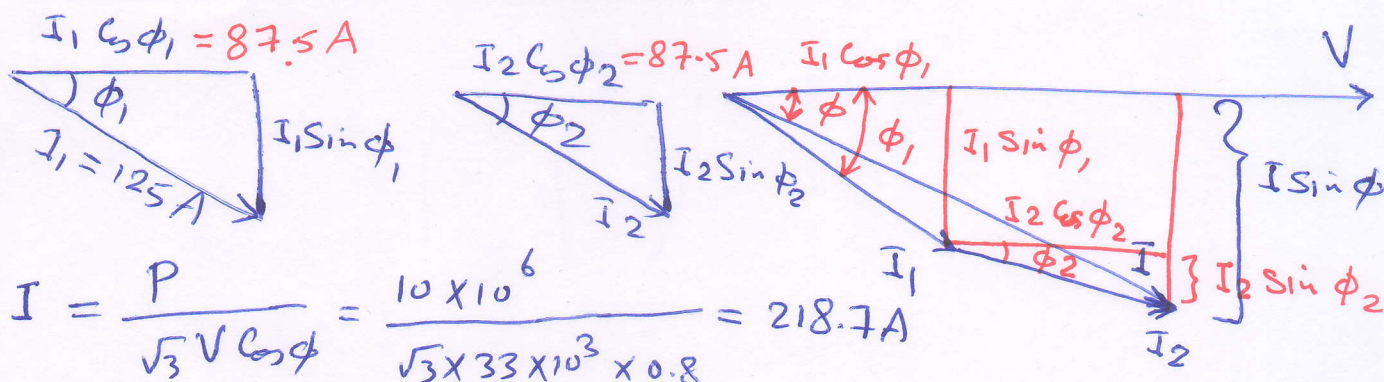 I₁ Cosϕ₁ = 87.5 A
ϕ₁
I₁ = 125 A
I₁ Sinϕ₁
I₂ Cosϕ₂ = 87.5 A
ϕ2
I₂ Sinϕ₂
I₂
V
I₁ Cosϕ₁
ϕ
ϕ₁
I₁ Sinϕ₁
I Sinϕ
I₂ Cosϕ₂
ϕ2
I₁
I
I₂ Sinϕ₂
I₂
I = P / √3 V Cosϕ = 10 × 10⁶ / √3 × 33 × 10³ × 0.8 = 218.7A